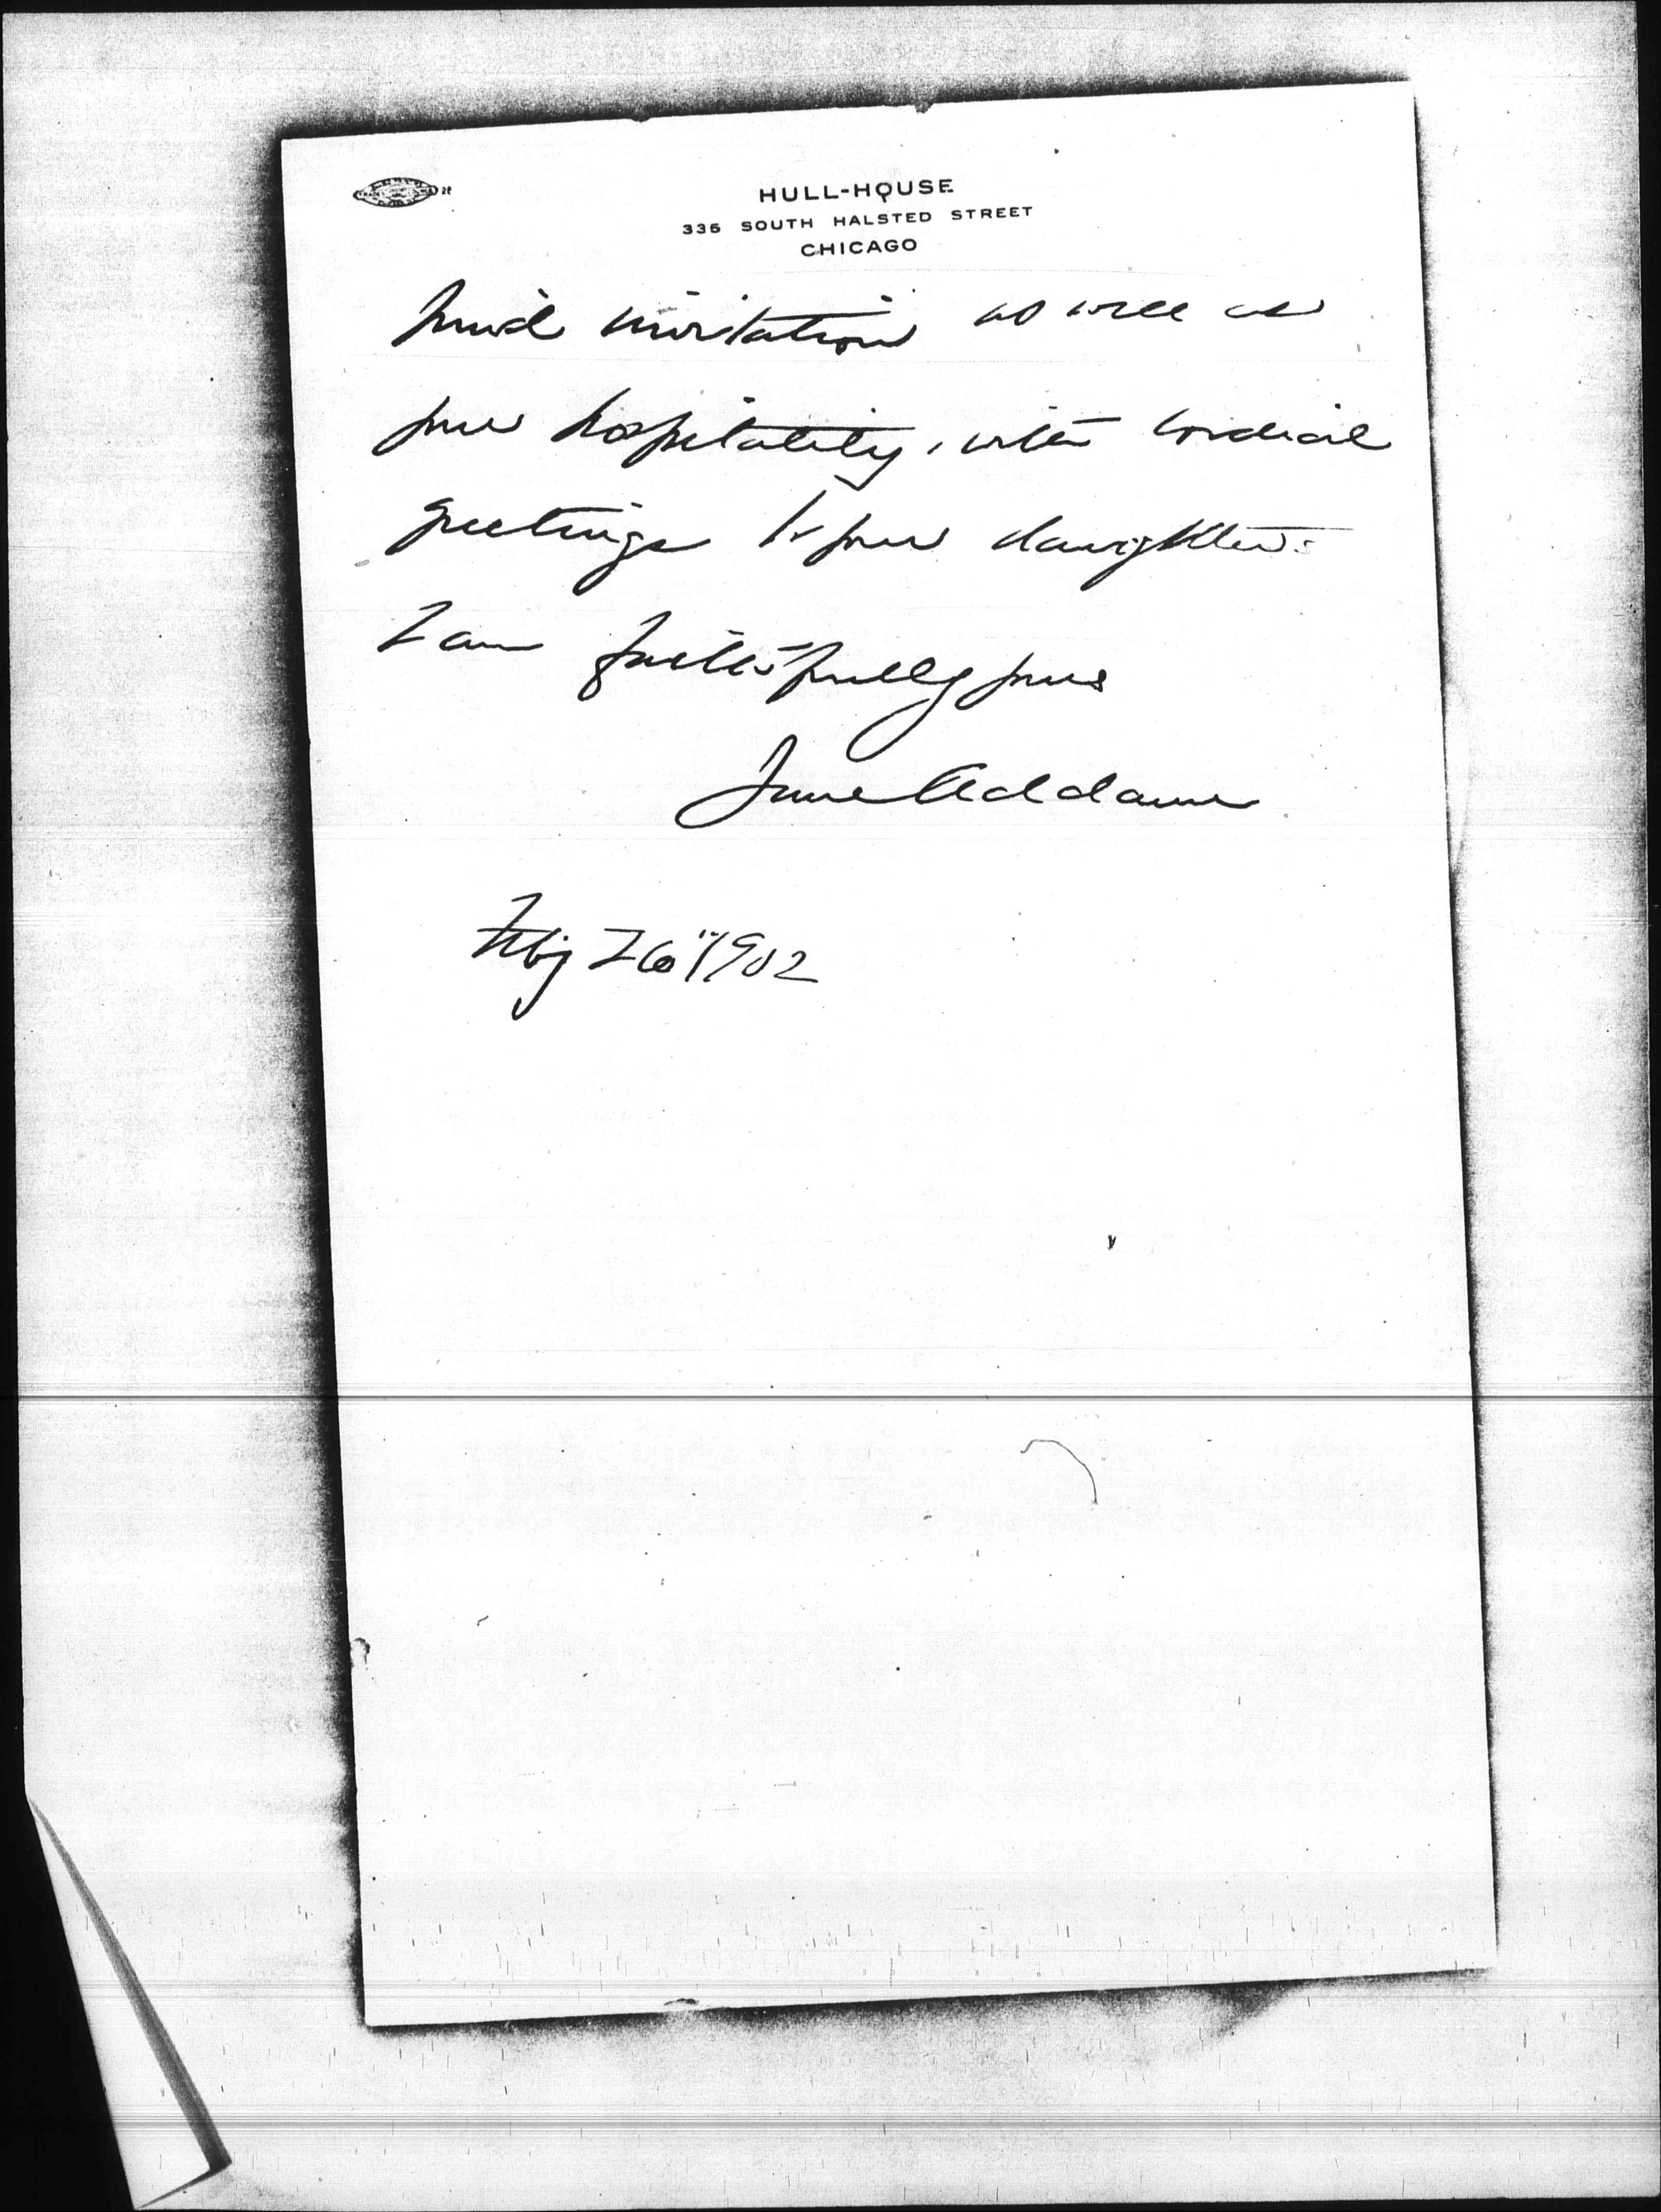 HULL-HOUSE
335 SOUTH HALSTED STREET
CHICAGO
kind invitation as well as
your hospitality, with cordial
greetings to your daughters
I am faithfully yours
Jane Addams
Feby 26" 1902